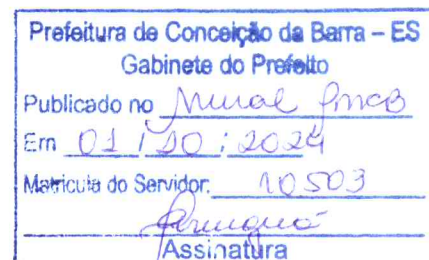 Prefeitura de Conceição da Barra – ES
Gabinete do Prefeito
Publicado no Mural PMCB
Em 01 / 10 / 2024
Matricula do Servidor: 10503
Assinatura